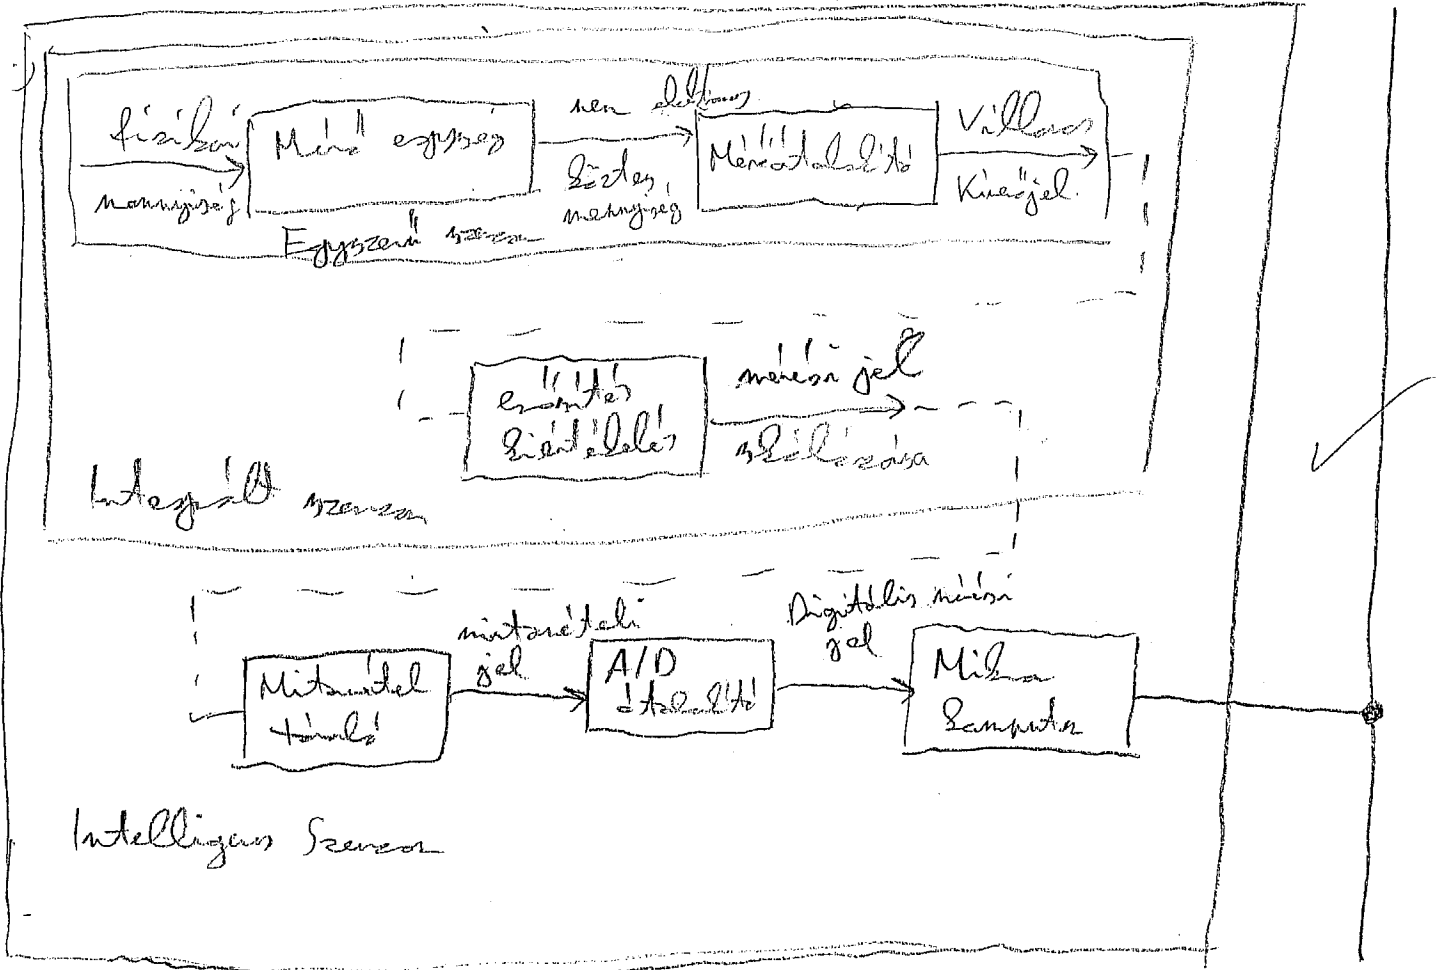 fizikai
mennyiség
Mérő egység
nem elektromos
köztes
mennyiség
Mérőátalakító
Villamos
Kimenőjel
Egyszerű szenzor
erősítés
kiértékelés
mérési jel
skálázása
Integrált szenzor
Mintavétel
tároló
mintavételi
jel
A/D
átalakító
Digitális mérési
jel
Mikro
komputer
Intelligens Szenzor